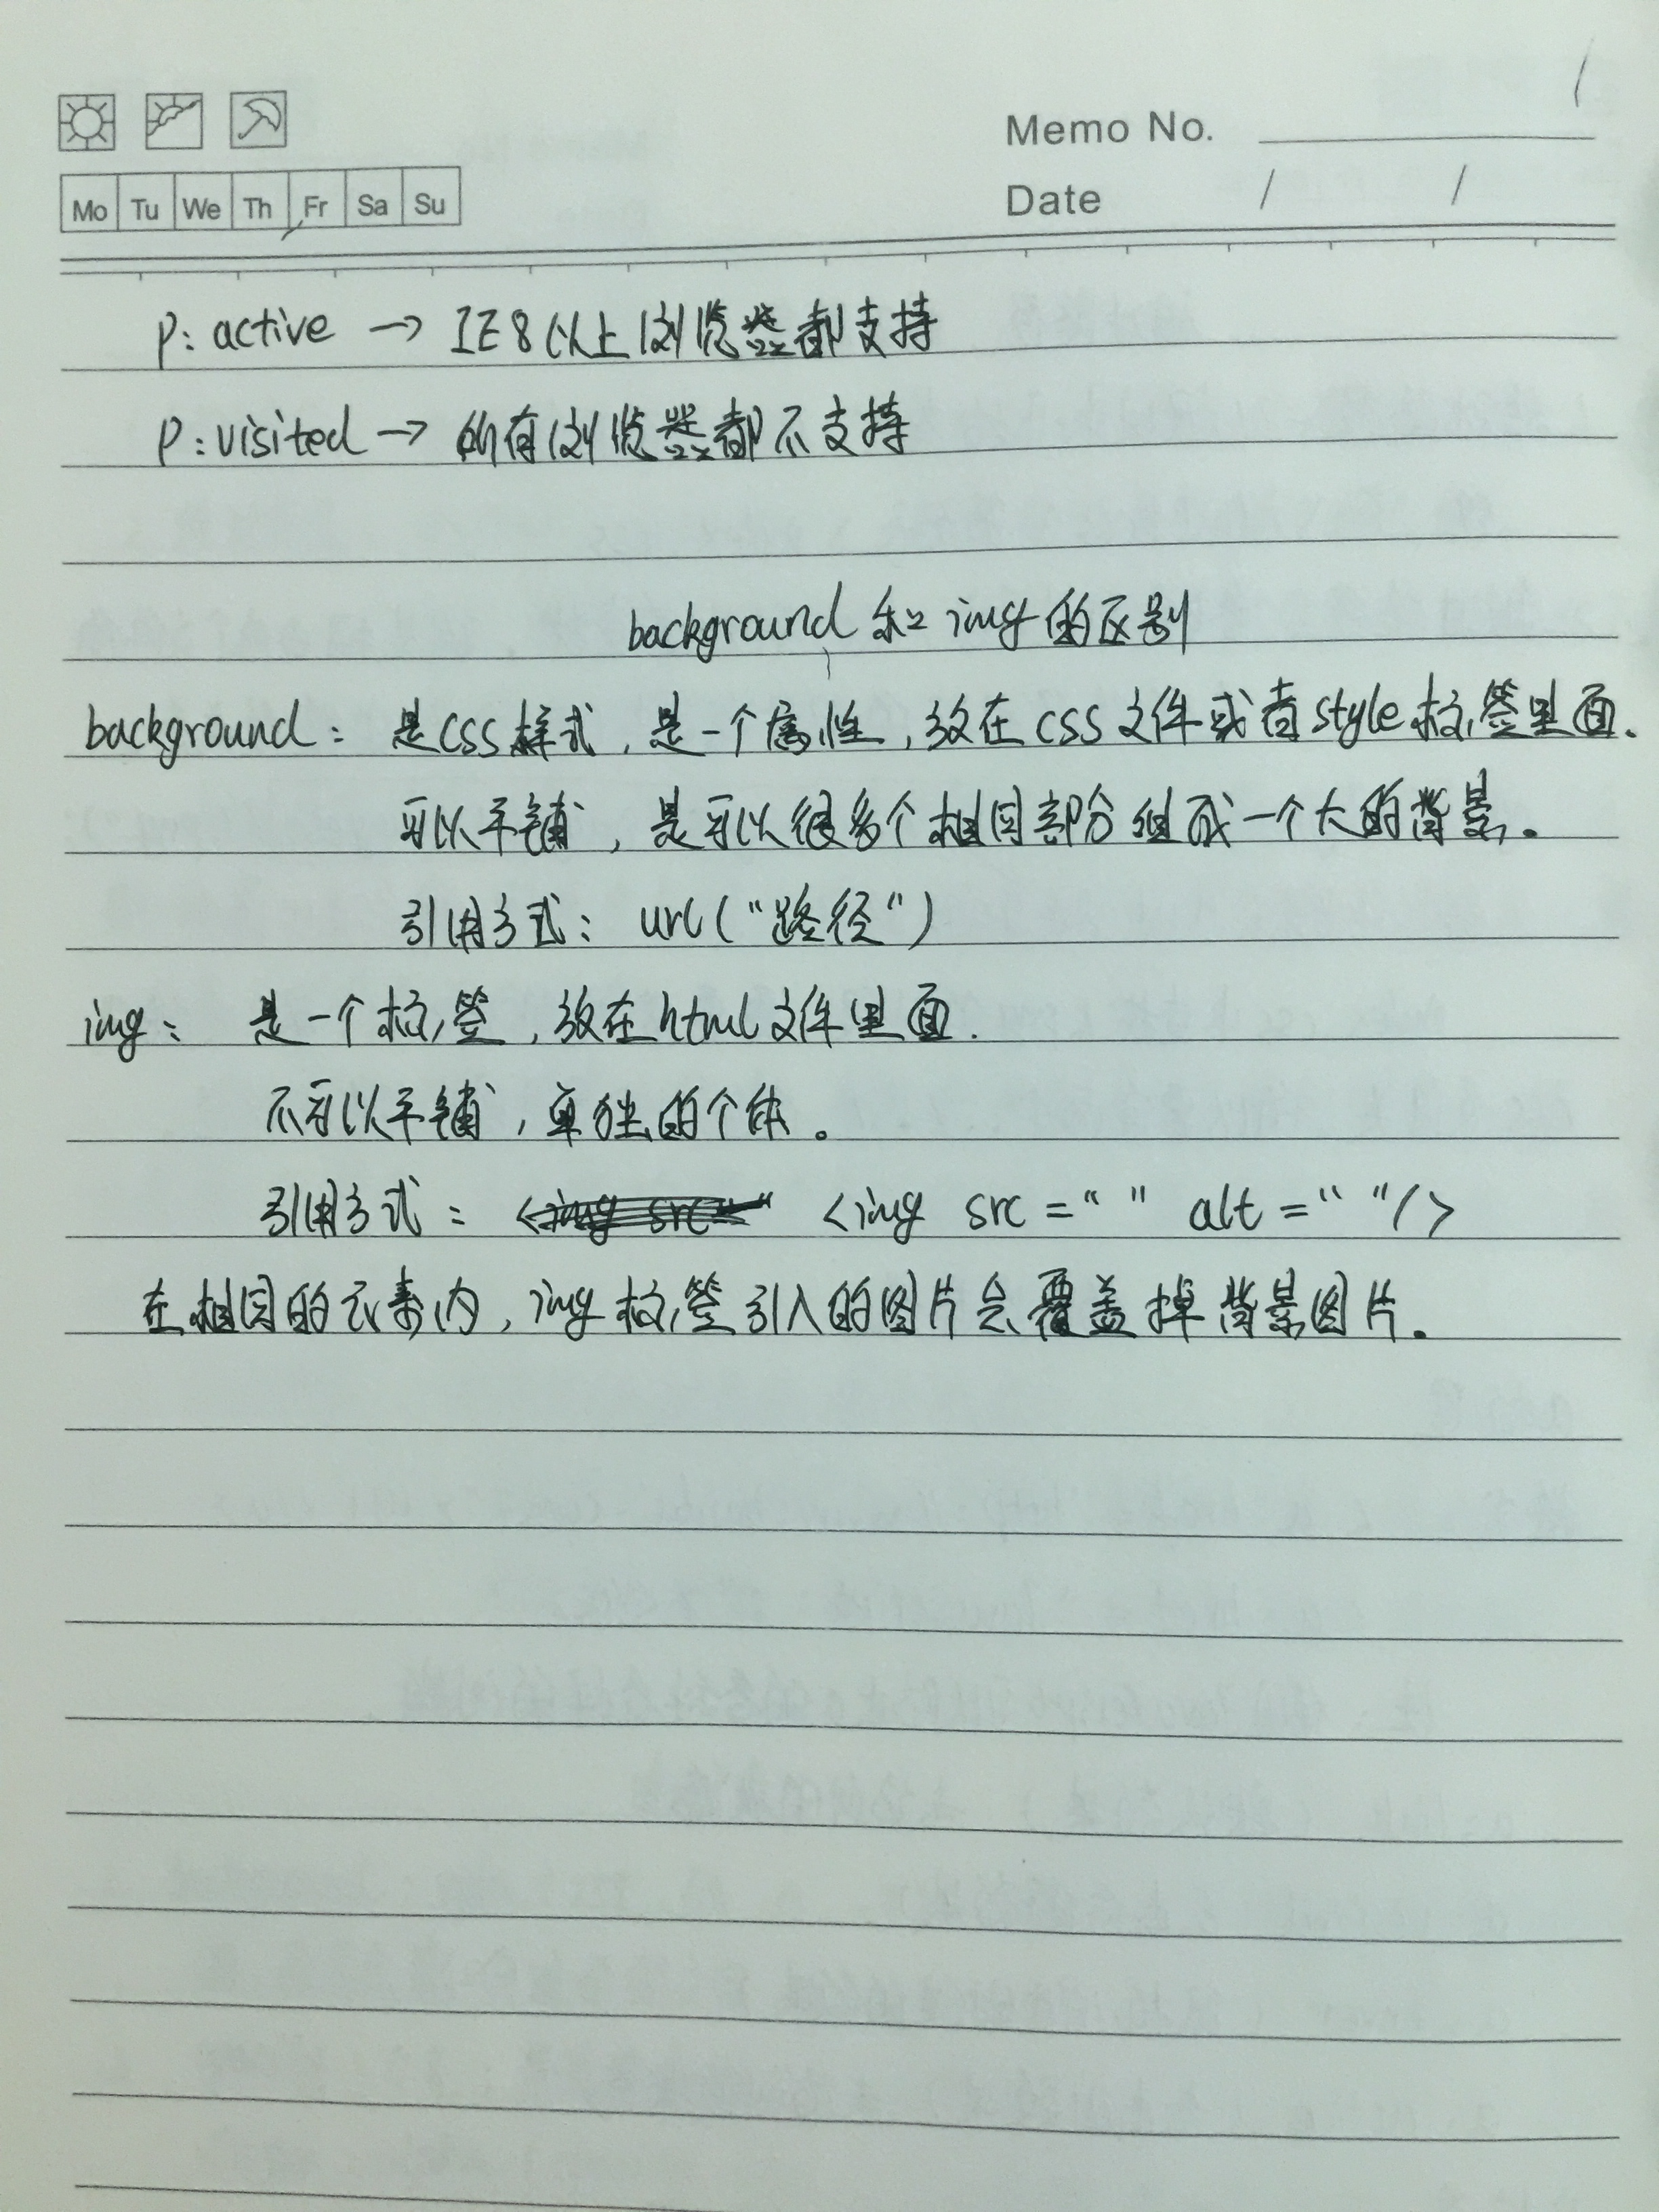 Memo No.
Mo Tu We Th Fr Sa Su
Date / /
p: active → IE8以上浏览器都支持
p: visited → 所有浏览器都不支持
background 和 img 的区别
background: 是CSS样式, 是一个属性, 放在CSS文件或者style标签里面.
可以平铺, 是可以很多个相同部分组成一个大的背景。
引用方式: url("路径")
img: 是一个标签, 放在html文件里面.
不可以平铺, 单独的个体。
引用方式: <img src=" <img src=" " alt=" "/>
在相同的元素内, img标签引入的图片会覆盖掉背景图片。